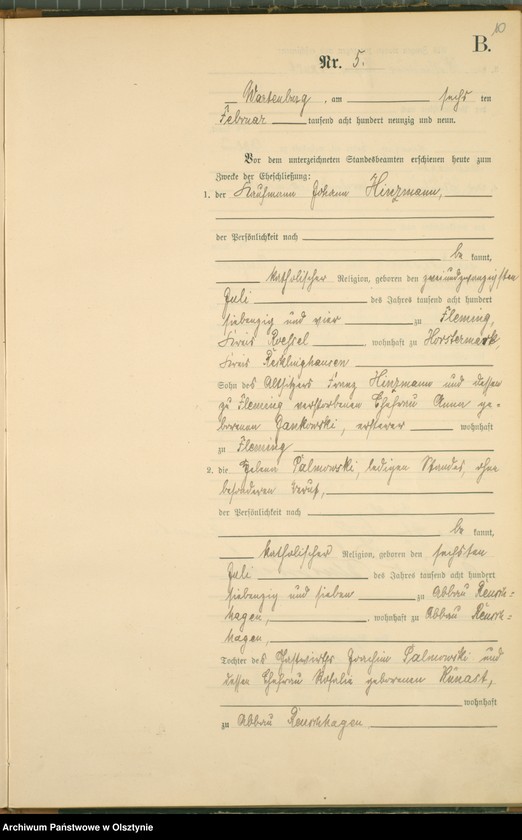 10
B.
Nr. 5.
Wartenburg, am sechs ten
Februar tausend acht hundert neunzig und neun.
Vor dem unterzeichneten Standesbeamten erschienen heute zum
Zwecke der Eheschließung:
1. der Kaufmann Johann Hinzmann,
der Persönlichkeit nach
be kannt,
katholischer Religion, geboren den zweiundzwanzigsten
Juli des Jahres tausend acht hundert
siebenzig und vier zu Fleming,
Kreis Roessel, wohnhaft zu Horstermark,
Kreis Recklinghausen
Sohn des Altsitzers Franz Hinzmann und dessen
zu Fleming verstorbenen Ehefrau Anna ge-
borenen Jankowski, ersterer wohnhaft
zu Fleming
2. die Helena Palmowski, ledigen Standes, ohne
besonderen Beruf,
der Persönlichkeit nach
be kannt,
katholischer Religion, geboren den sechsten
Juli des Jahres tausend acht hundert
siebenzig und sieben zu Abbau Reusch-
hagen, wohnhaft zu Abbau Reusch-
hagen,
Tochter des Gastwirths Joachim Palmowski und
dessen Ehefrau Rosalie geborenen Kunast,
wohnhaft
zu Abbau Reuschhagen
Archiwum Państwowe w Olsztynie